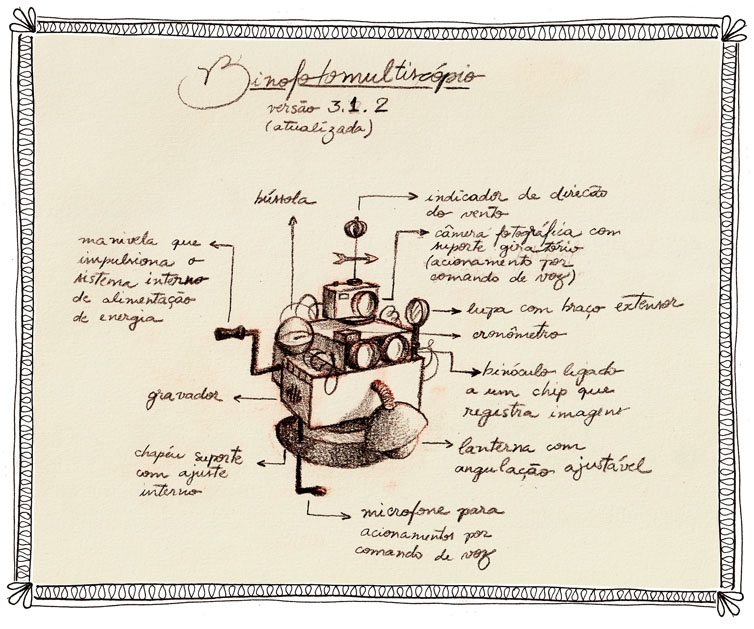 Binofotomultiscópio
versão 3.1.2
(atualizada)
bússola
indicador de direção
do vento
câmera fotográfica com
suporte giratório
(acionamento por
comando de voz)
manivela que
impulsiona o
sistema interno
de alimentação
de energia
lupa com braço extensor
cronômetro
binóculo ligado
a um chip que
registra imagens
gravador
chapéu suporte
com ajuste
interno
lanterna com
angulação ajustável
microfone para
acionamentos por
comando de voz